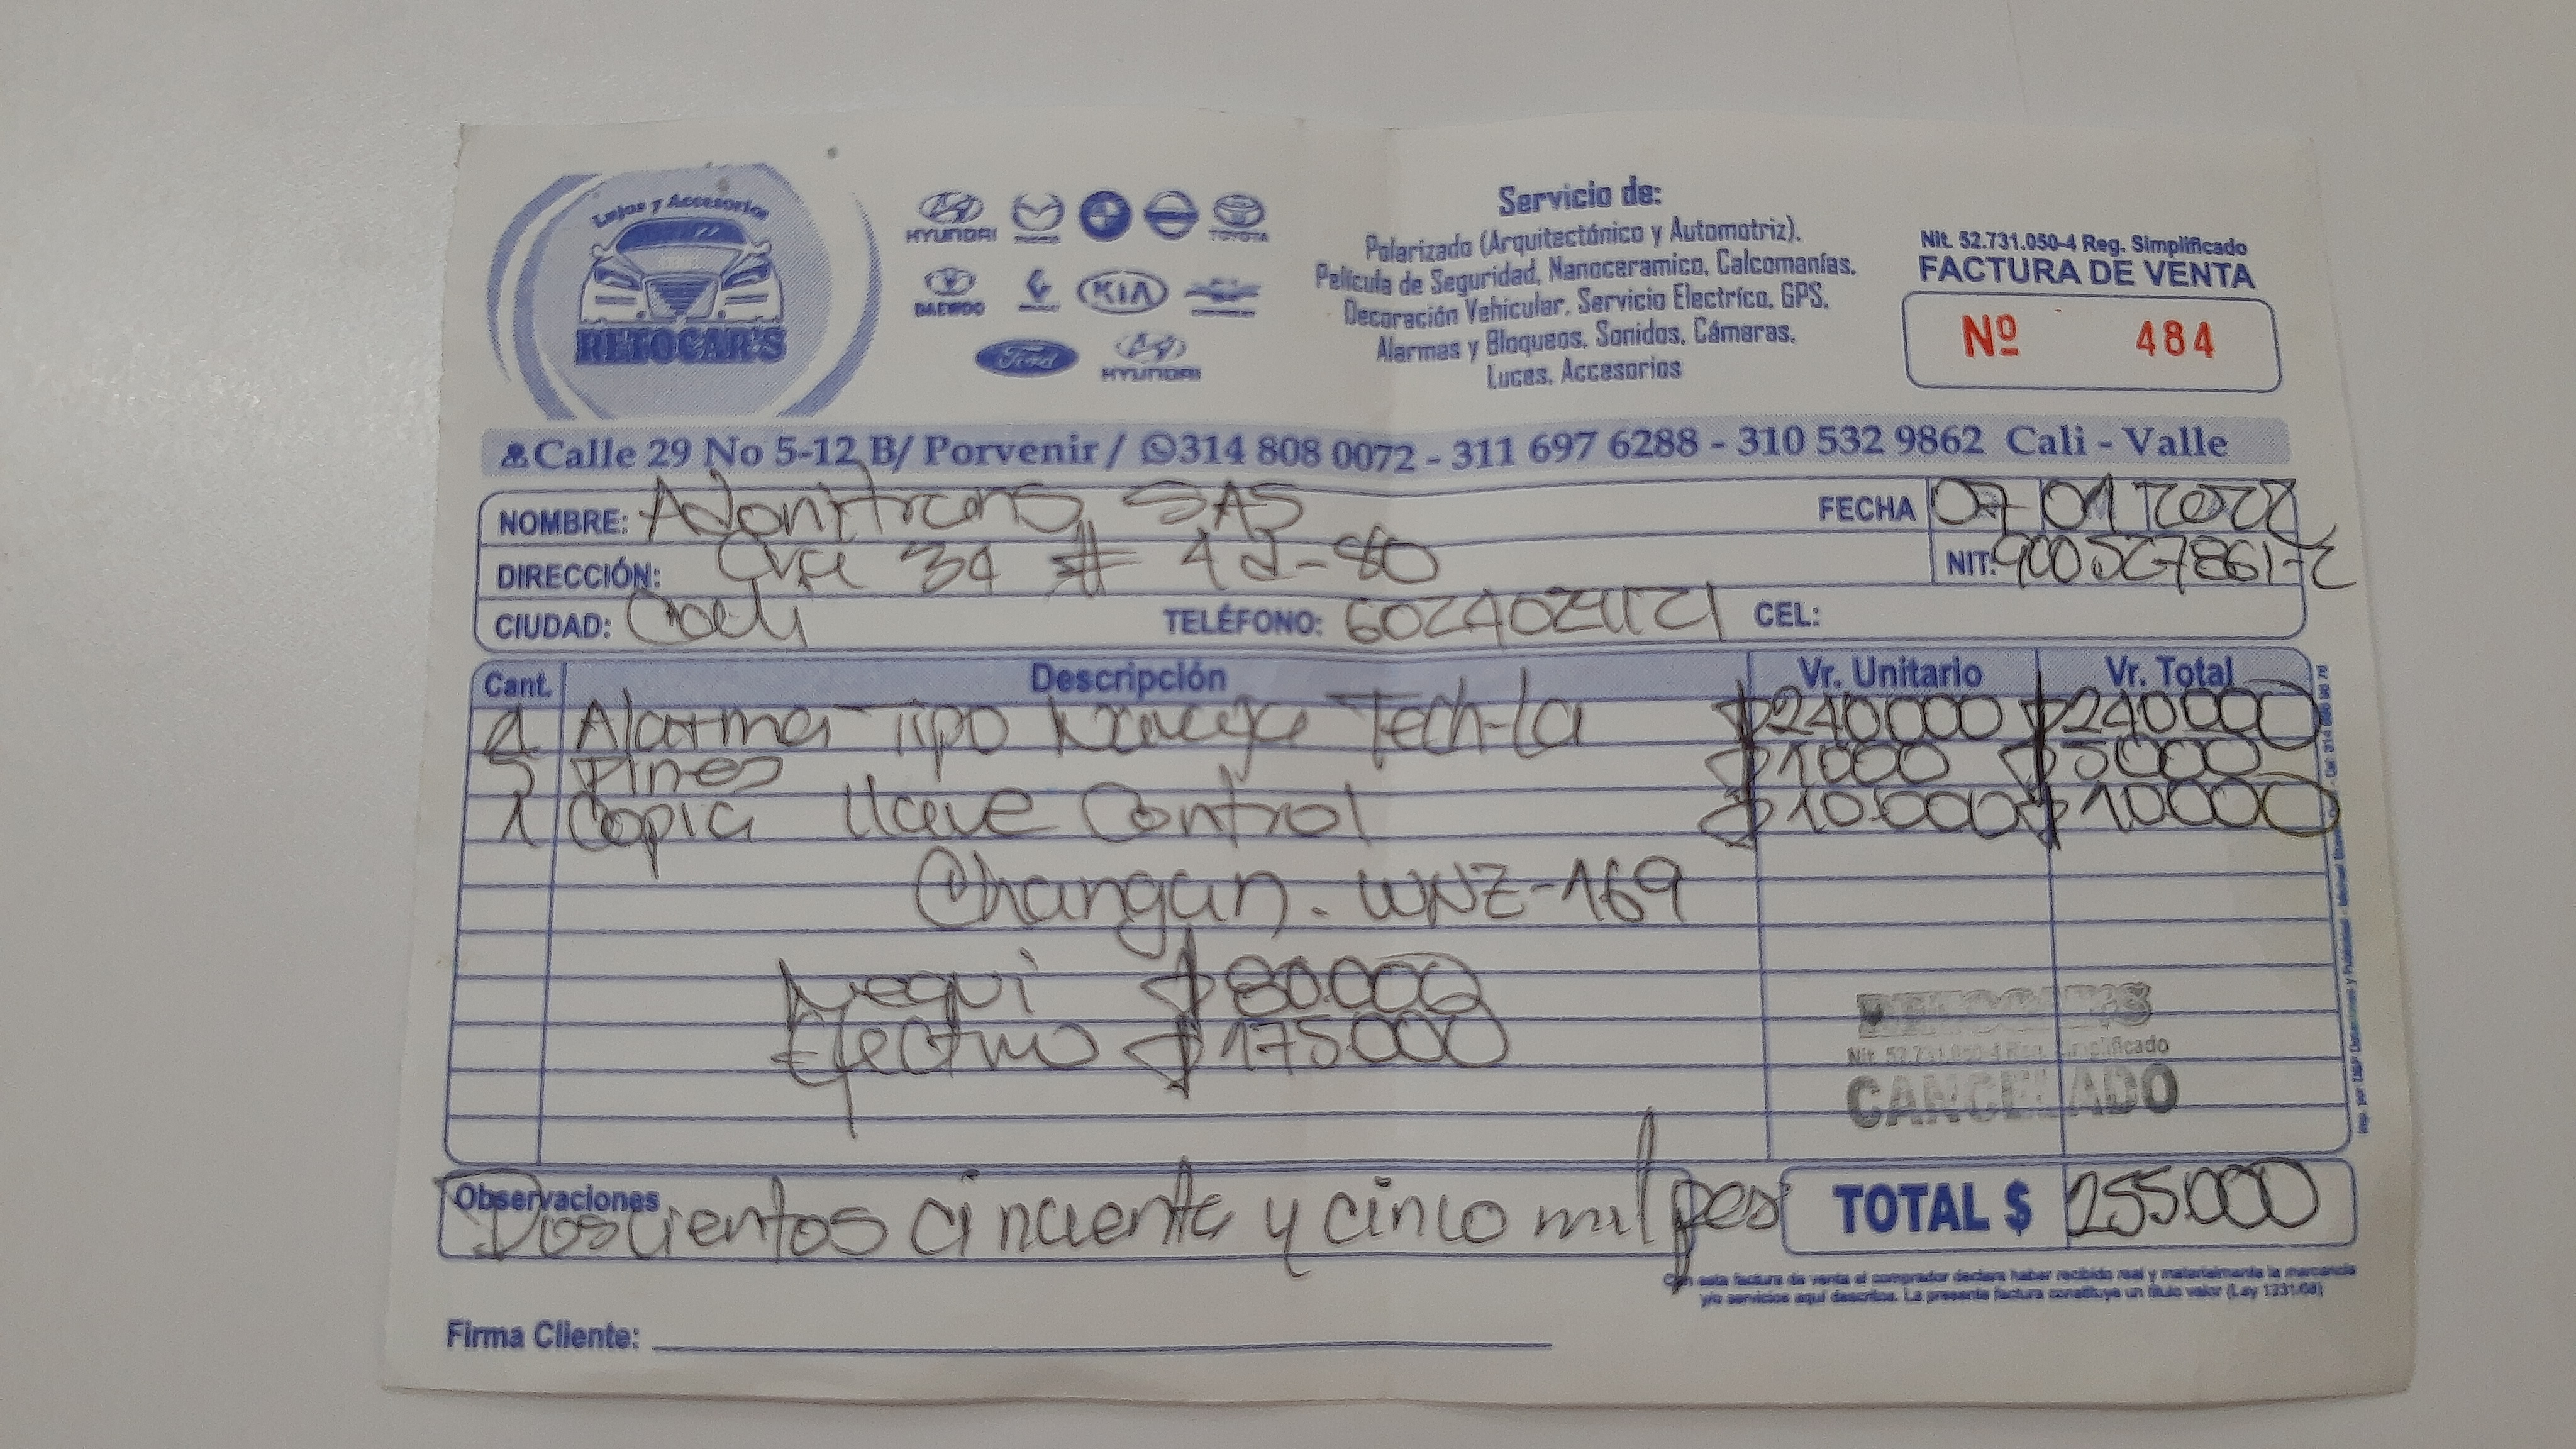 Lujos y Accesorios
RETOCAR'S
HYUNDAI TOYOTA
DAEWOO KIA
Ford HYUNDAI
Servicio de:
Polarizado (Arquitectónico y Automotriz),
Película de Seguridad, Nanoceramico, Calcomanías,
Decoración Vehicular, Servicio Electríco, GPS,
Alarmas y Bloqueos, Sonidos, Cámaras,
Luces, Accesorios
Nit. 52.731.050-4 Reg. Simplificado
FACTURA DE VENTA
Nº 484
Calle 29 No 5-12 B/ Porvenir / 314 808 0072 - 311 697 6288 - 310 532 9862 Cali - Valle
NOMBRE: Adonitrans SAS FECHA 07 01 2022
DIRECCIÓN: Cra 34 # 4d-80 NIT: 900527861-2
CIUDAD: Cali TELÉFONO: CEL:
Cant. Descripción Vr. Unitario Vr. Total
1 Alarma Tipo Tech-la $240000 $240000
5 Pines $1000 $5000
1 Copia llave Control $10.000 $10000
Changan. WNZ-169
Nequi $80.000
Efectivo $175000
RETOCAR'S
Nit. 52.731.050-4 Reg. Simplificado
CANCELADO
Observaciones Doscientos cincuenta y cinco mil pesos TOTAL $ 255.000
Con esta factura de venta el comprador declara haber recibido real y materialmente la mercancía
y/o servicios aquí descritos. La presente factura constituye un título valor (Ley 1231/08)
Firma Cliente: